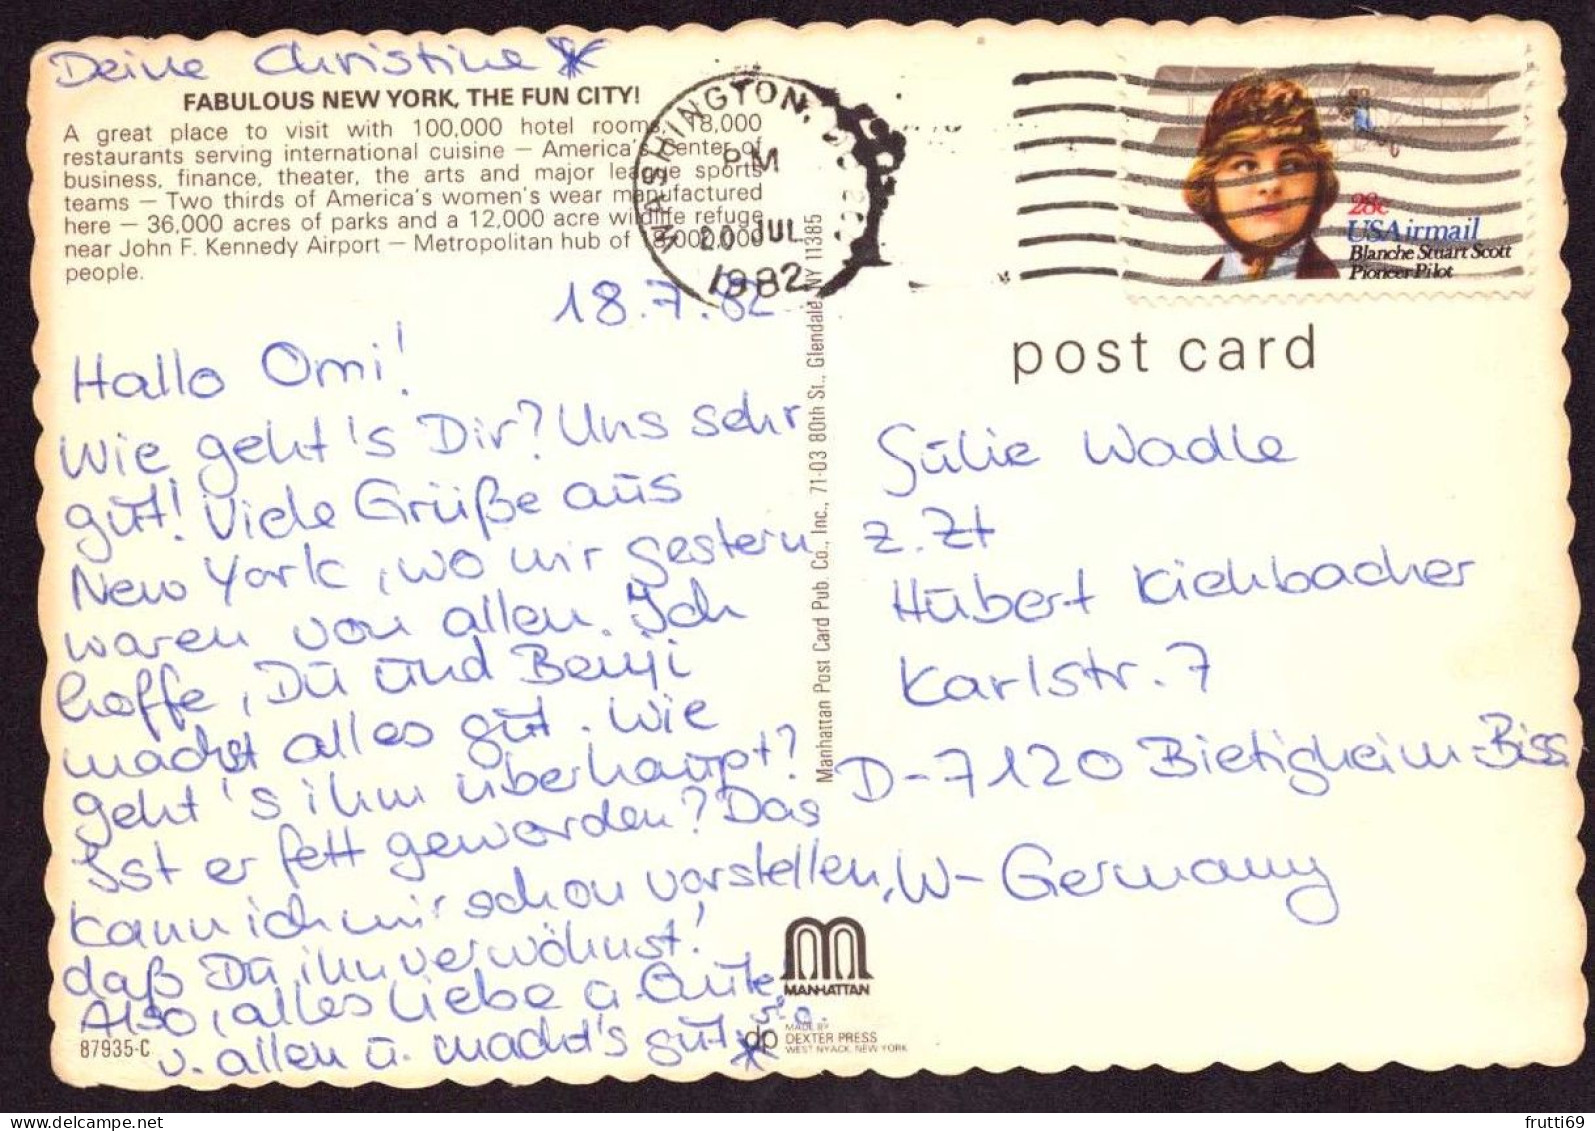 Deine Christine
FABULOUS NEW YORK, THE FUN CITY!
A great place to visit with 100,000 hotel rooms, 18,000
restaurants serving international cuisine — America's center of
business, finance, theater, the arts and major league sports
teams — Two thirds of America's women's wear manufactured
here — 36,000 acres of parks and a 12,000 acre wildlife refuge
near John F. Kennedy Airport — Metropolitan hub of 18,000,000
people.
18.7.82
Hallo Omi!
Wie geht's Dir? Uns sehr
gut! Viele Grüße aus
New York, wo wir gestern
waren von allen. Ich
hoffe, Du und Benji
macht alles gut. Wie
geht's ihm überhaupt?
Ist er fett geworden? Das
kann ich mir schon vorstellen,
daß Du ihn verwöhnst!
Also, alles Liebe u. Gute,
s.o.
v. allen u. macht's gut
87935-C
WASHINGTON, DC
PM
20 JUL
1982
Manhattan Post Card Pub. Co., Inc., 71-03 80th St., Glendale, NY 11385
28c
USAirmail
Blanche Stuart Scott
Pioneer Pilot
post card
Julie Wadle
z. Zt
Hubert Kichbacher
Karlstr. 7
D-7120 Bietigheim-Biss.
W-Germany
MANHATTAN
dp MADE BY
DEXTER PRESS
WEST NYACK, NEW YORK
frutti69